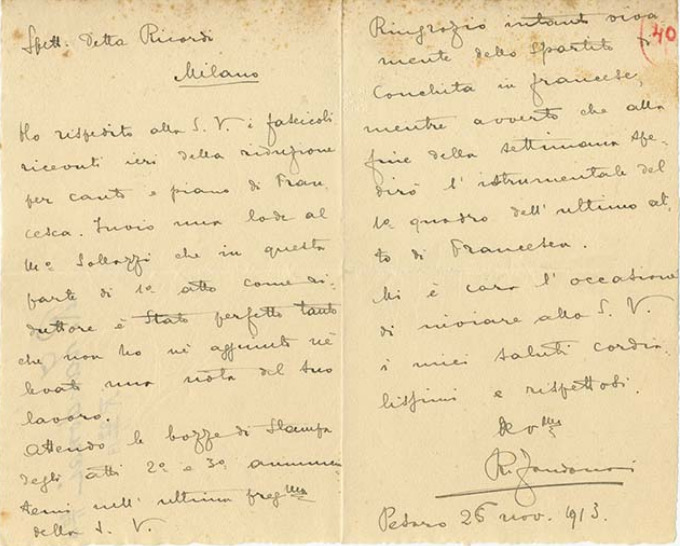 Spett. Ditta Ricordi
Milano
Ho rispedito alla S. V. i fascicoli
ricevuti ieri della riduzione
per canto e piano di Fran
cesca. Invio una lode al
M.º Solazzi che in questa
parte di 1º atto come ri-
duttore è stato perfetto tanto
che non ho nè aggiunto nè
levato una nota del suo
lavoro.
Attendo le bozze di stampa
degli atti 2º e 3º annun
temi nell' ultima preg.ma
della S. V.
Ringrazio intanto viva
mente dello spartito di
Conchita in francese,
mentre avverto che alla
fine della settimana spe-
dirò l' istrumentale del
1º quadro dell' ultimo at
to di Francesca.
Mi è cara l' occasione
di inviare alla S. V.
i miei saluti cordia
lissimi e rispettosi.
Devmo
R. Zandonai
Pesaro 26 nov. 1913.
40